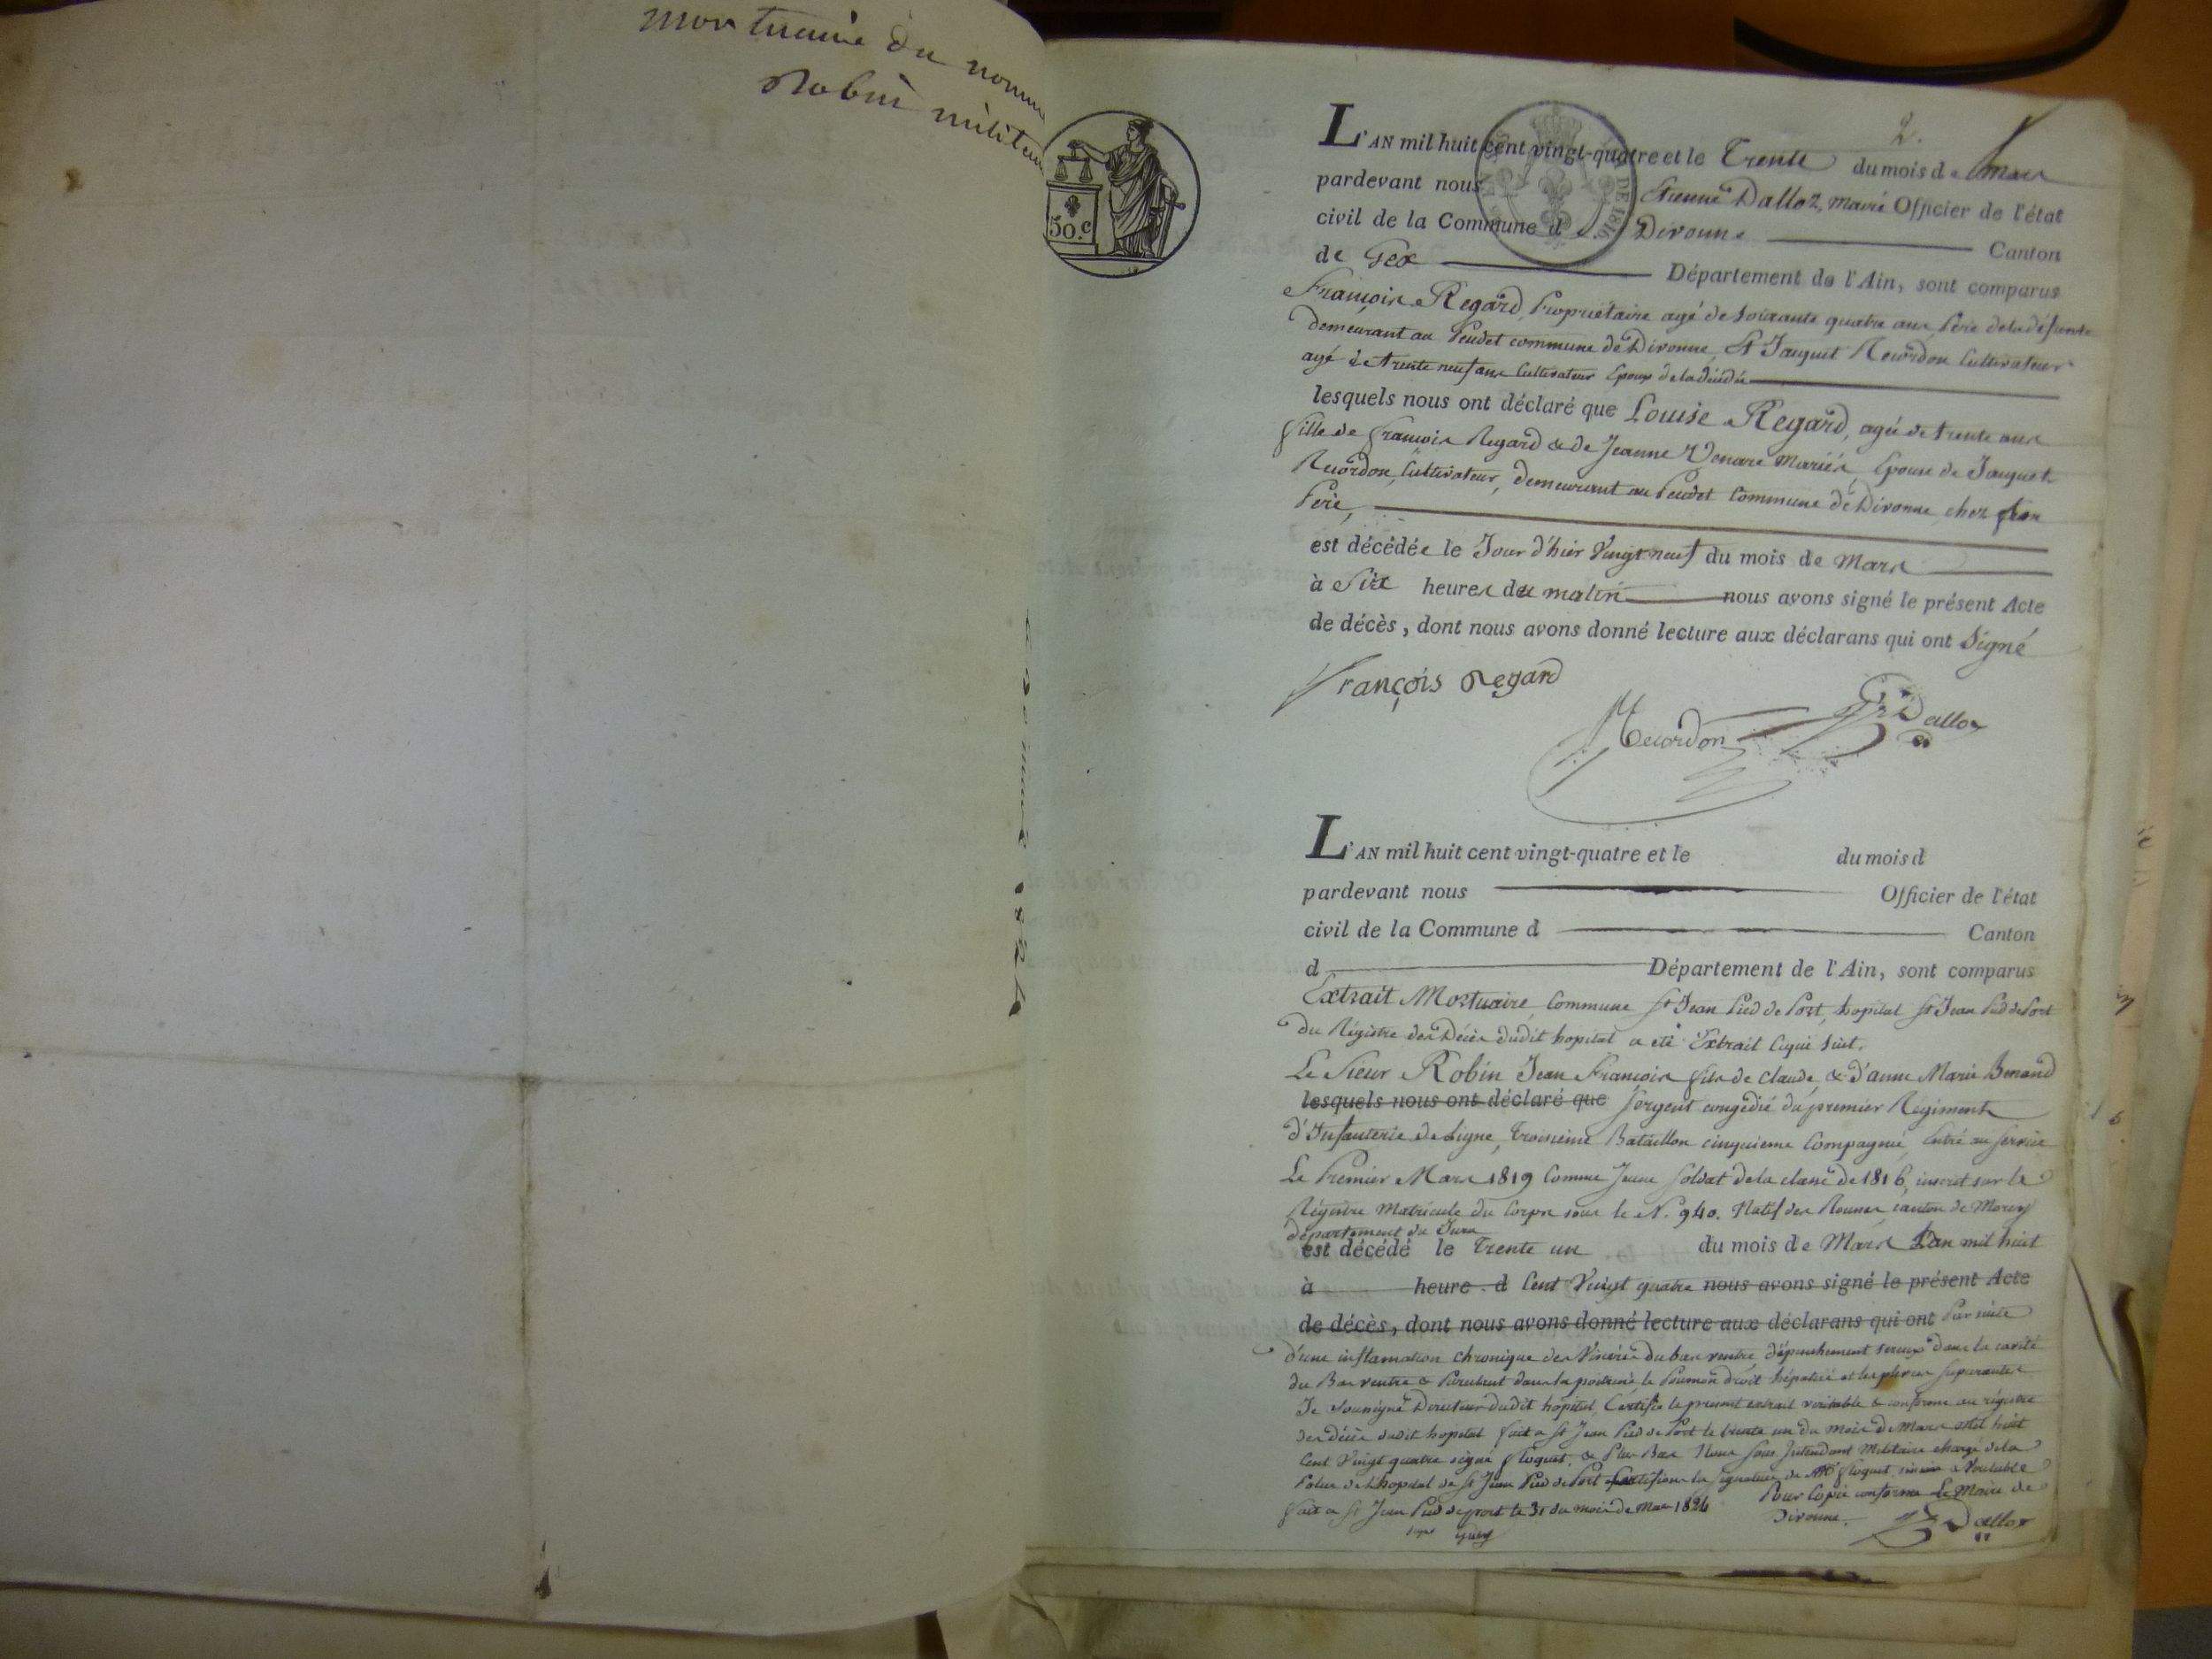 mortuaire du nommé
Robin militaire
50.c
2.
L'AN mil huit cent vingt-quatre et le Trente du mois de Mars
pardevant nous Etienne Dalloz, maire Officier de l'état
civil de la Commune de Divonne Canton
de Gex Département de l'Ain, sont comparus
François Regard, Propriétaire agé de soixante quatre ans, Père de la défunte
demeurant au Peudet commune de Divonne, et Jaquet Recordon Cultivateur
agé de trente neuf ans Cultivateur Epoux de la décédée
lesquels nous ont déclaré que Louise Regard, agée de trente ans
fille de François Regard & de Jeanne Mariés, Epouse de Jaquet
Recordon, Cultivateur, demeurant au Peudet Commune de Divonne chez son
Père,
est décédée le Jour d'hier Vingt neuf du mois de Mars
à Six heures du matin nous avons signé le présent Acte
de décès, dont nous avons donné lecture aux déclarans qui ont signé
françois Regard
Recordon Dalloz
L'AN mil huit cent vingt-quatre et le du mois d
pardevant nous Officier de l'état
civil de la Commune d Canton
d Département de l'Ain, sont comparus
Extrait Mortuaire, Commune St Jean Pied de Port, hopital St Jean Pied de Port
du Régistre des Décès dudit hopital a été Extrait ce qui suit,
Le Sieur Robin Jean François fils de Claude, & d'anne Marie Benand
lesquels nous ont déclaré que Sergent congédié du premier Régiment
d'Infanterie de Ligne, Troisieme Bataillon cinquieme Compagnie, Entré au Service
Le Premier Mars 1819 Comme Jeune Soldat de la classe de 1816, inscrit sur le
Régistre Matricule du Corps sous le N. 940. Natif des Rousses, canton de Morez
département du Jura
est décédé le Trente un du mois de Mars L'an mil huit
à heure d Cent Vingt quatre nous avons signé le présent Acte
de décès, dont nous avons donné lecture aux déclarans qui ont Par suite
d'une inflamation chronique des Viscères du bas ventre, d'épanchement sereux dans la cavité
du Bas ventre & Purulent dans la poitrine, le Poumon droit hépatisé et les plevres supurantes
Je Soussigné Directeur dudit hopital, Certifie le présent extrait véritable & conforme au régistre
des décès dudit hopital fait a St Jean Pied de Port le trente un du mois de Mars Mil huit
Cent Vingt quatre signé Floquet, & Plus Bas Nous Sous Intendant Militaire chargé de la
Police de l'hopital de St Jean Pied de Port Certifions la signature de Mr Floquet Véritable
fait a St Jean Pied de port le 31 du mois de Mars 1824 Pour Copie conforme Le Maire de
signé Divonne. Dalloz